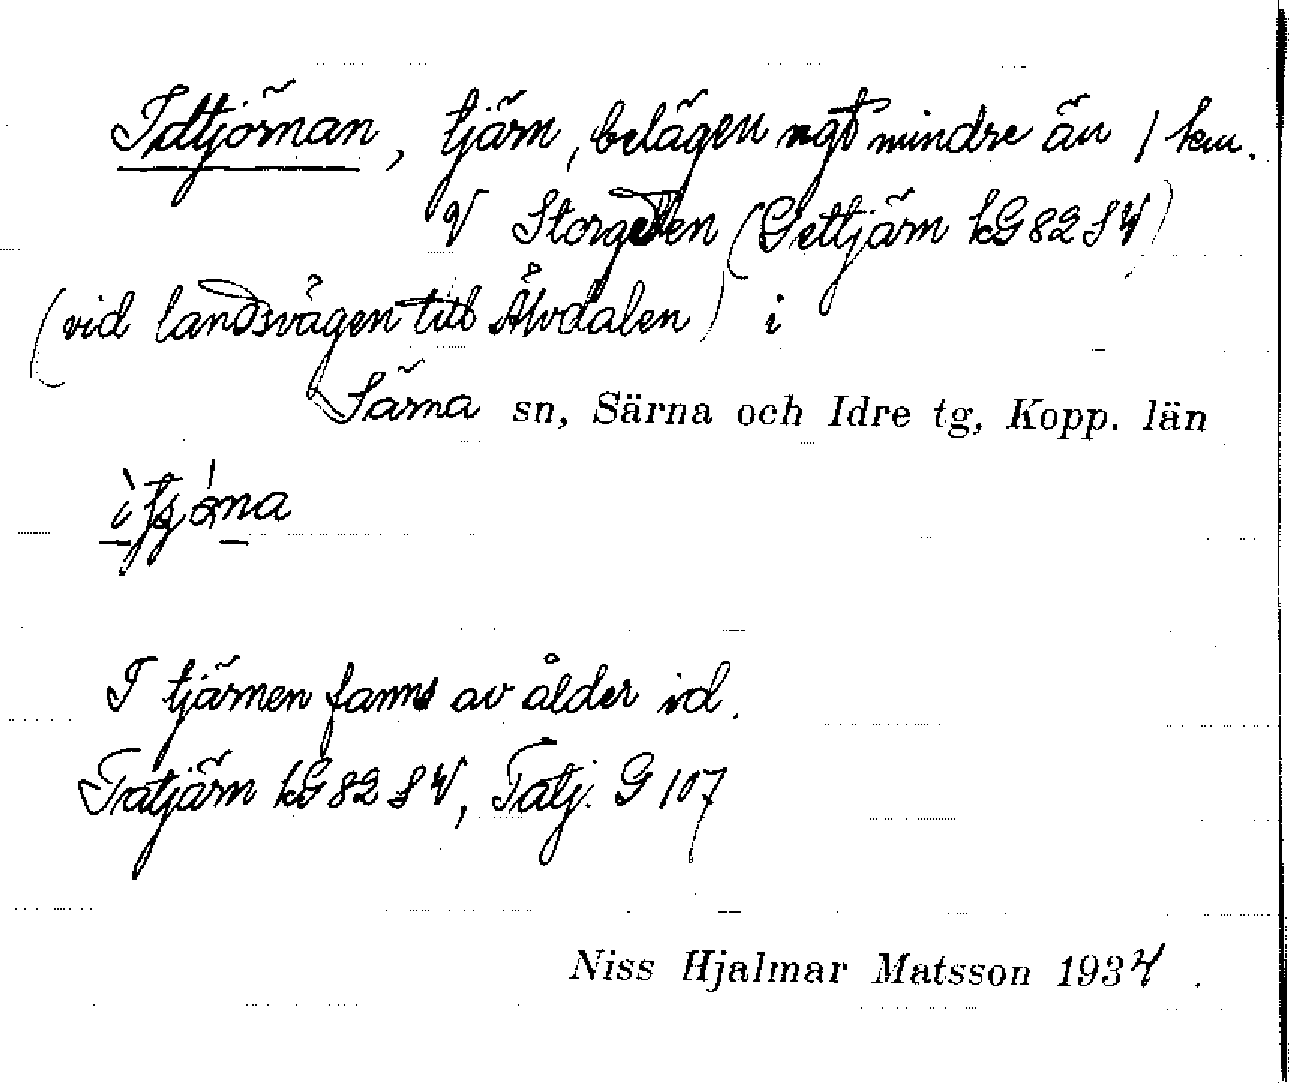 Idtjörnan, tjärn, belägen ngt mindre än 1 km.
V Storgetten (Gettjärn kG 82 SV)
(vid landsvägen till Älvdalen) i
Särna sn, Särna och Idre tg, Kopp. län
I tjärnen fanns av ålder id.
Tatjärn kG 82 SV, Tatj. G 107
Niss Hjalmar Matsson 1934.